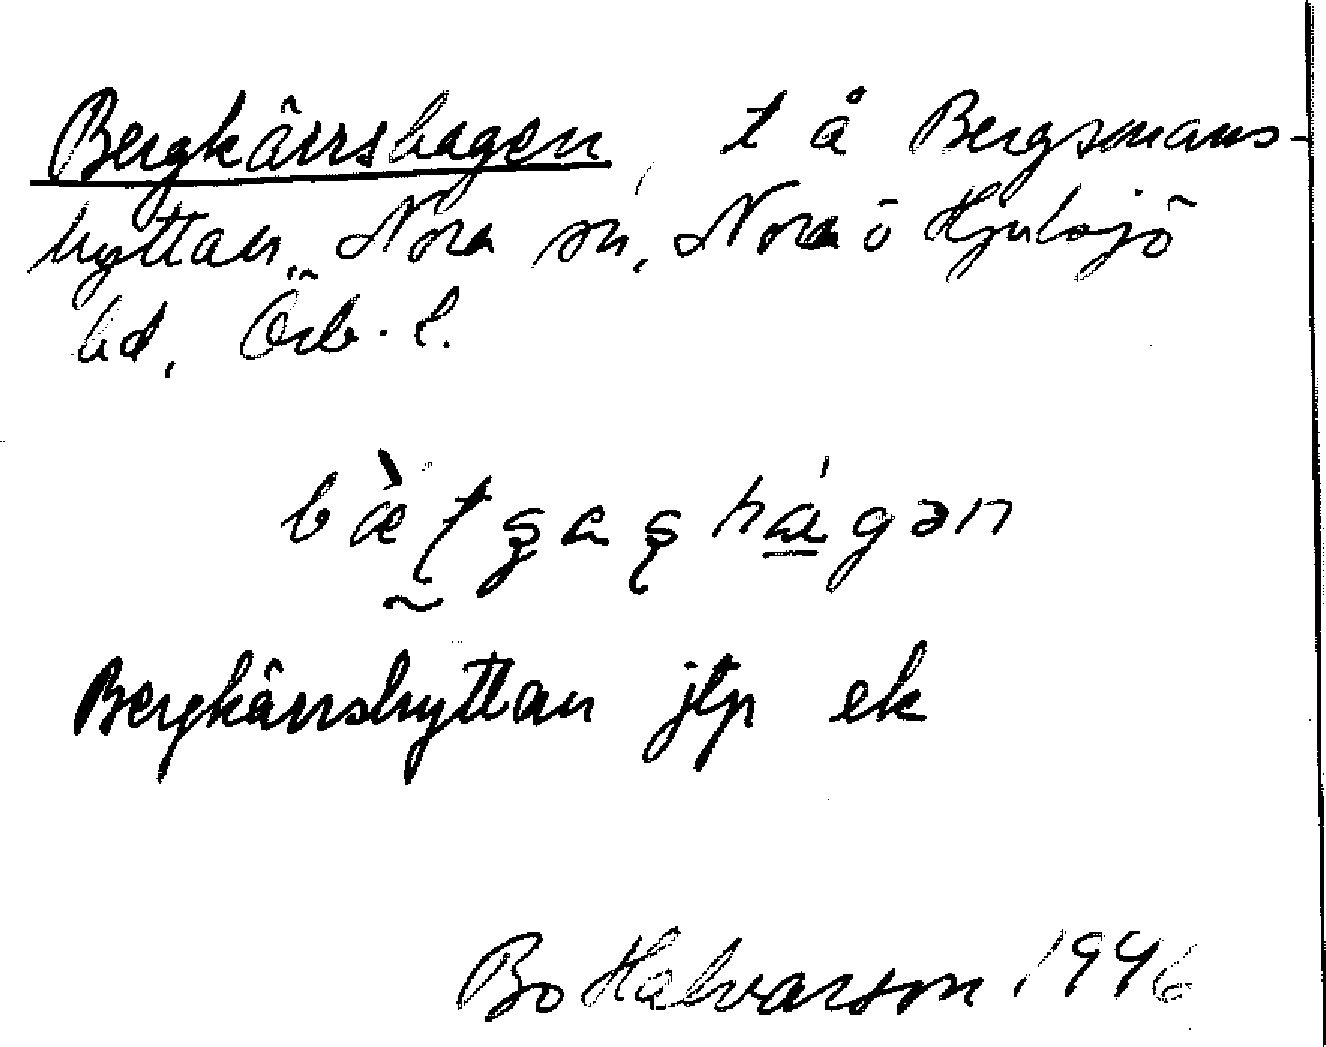 Bergkärrshagen, t å Bergsmans-
hyttan, Nora sn, Nora ō Hjulsjö
hd, Örb. l.
Bergkärrshyttan jtp ek
Bo Halvarson 1946